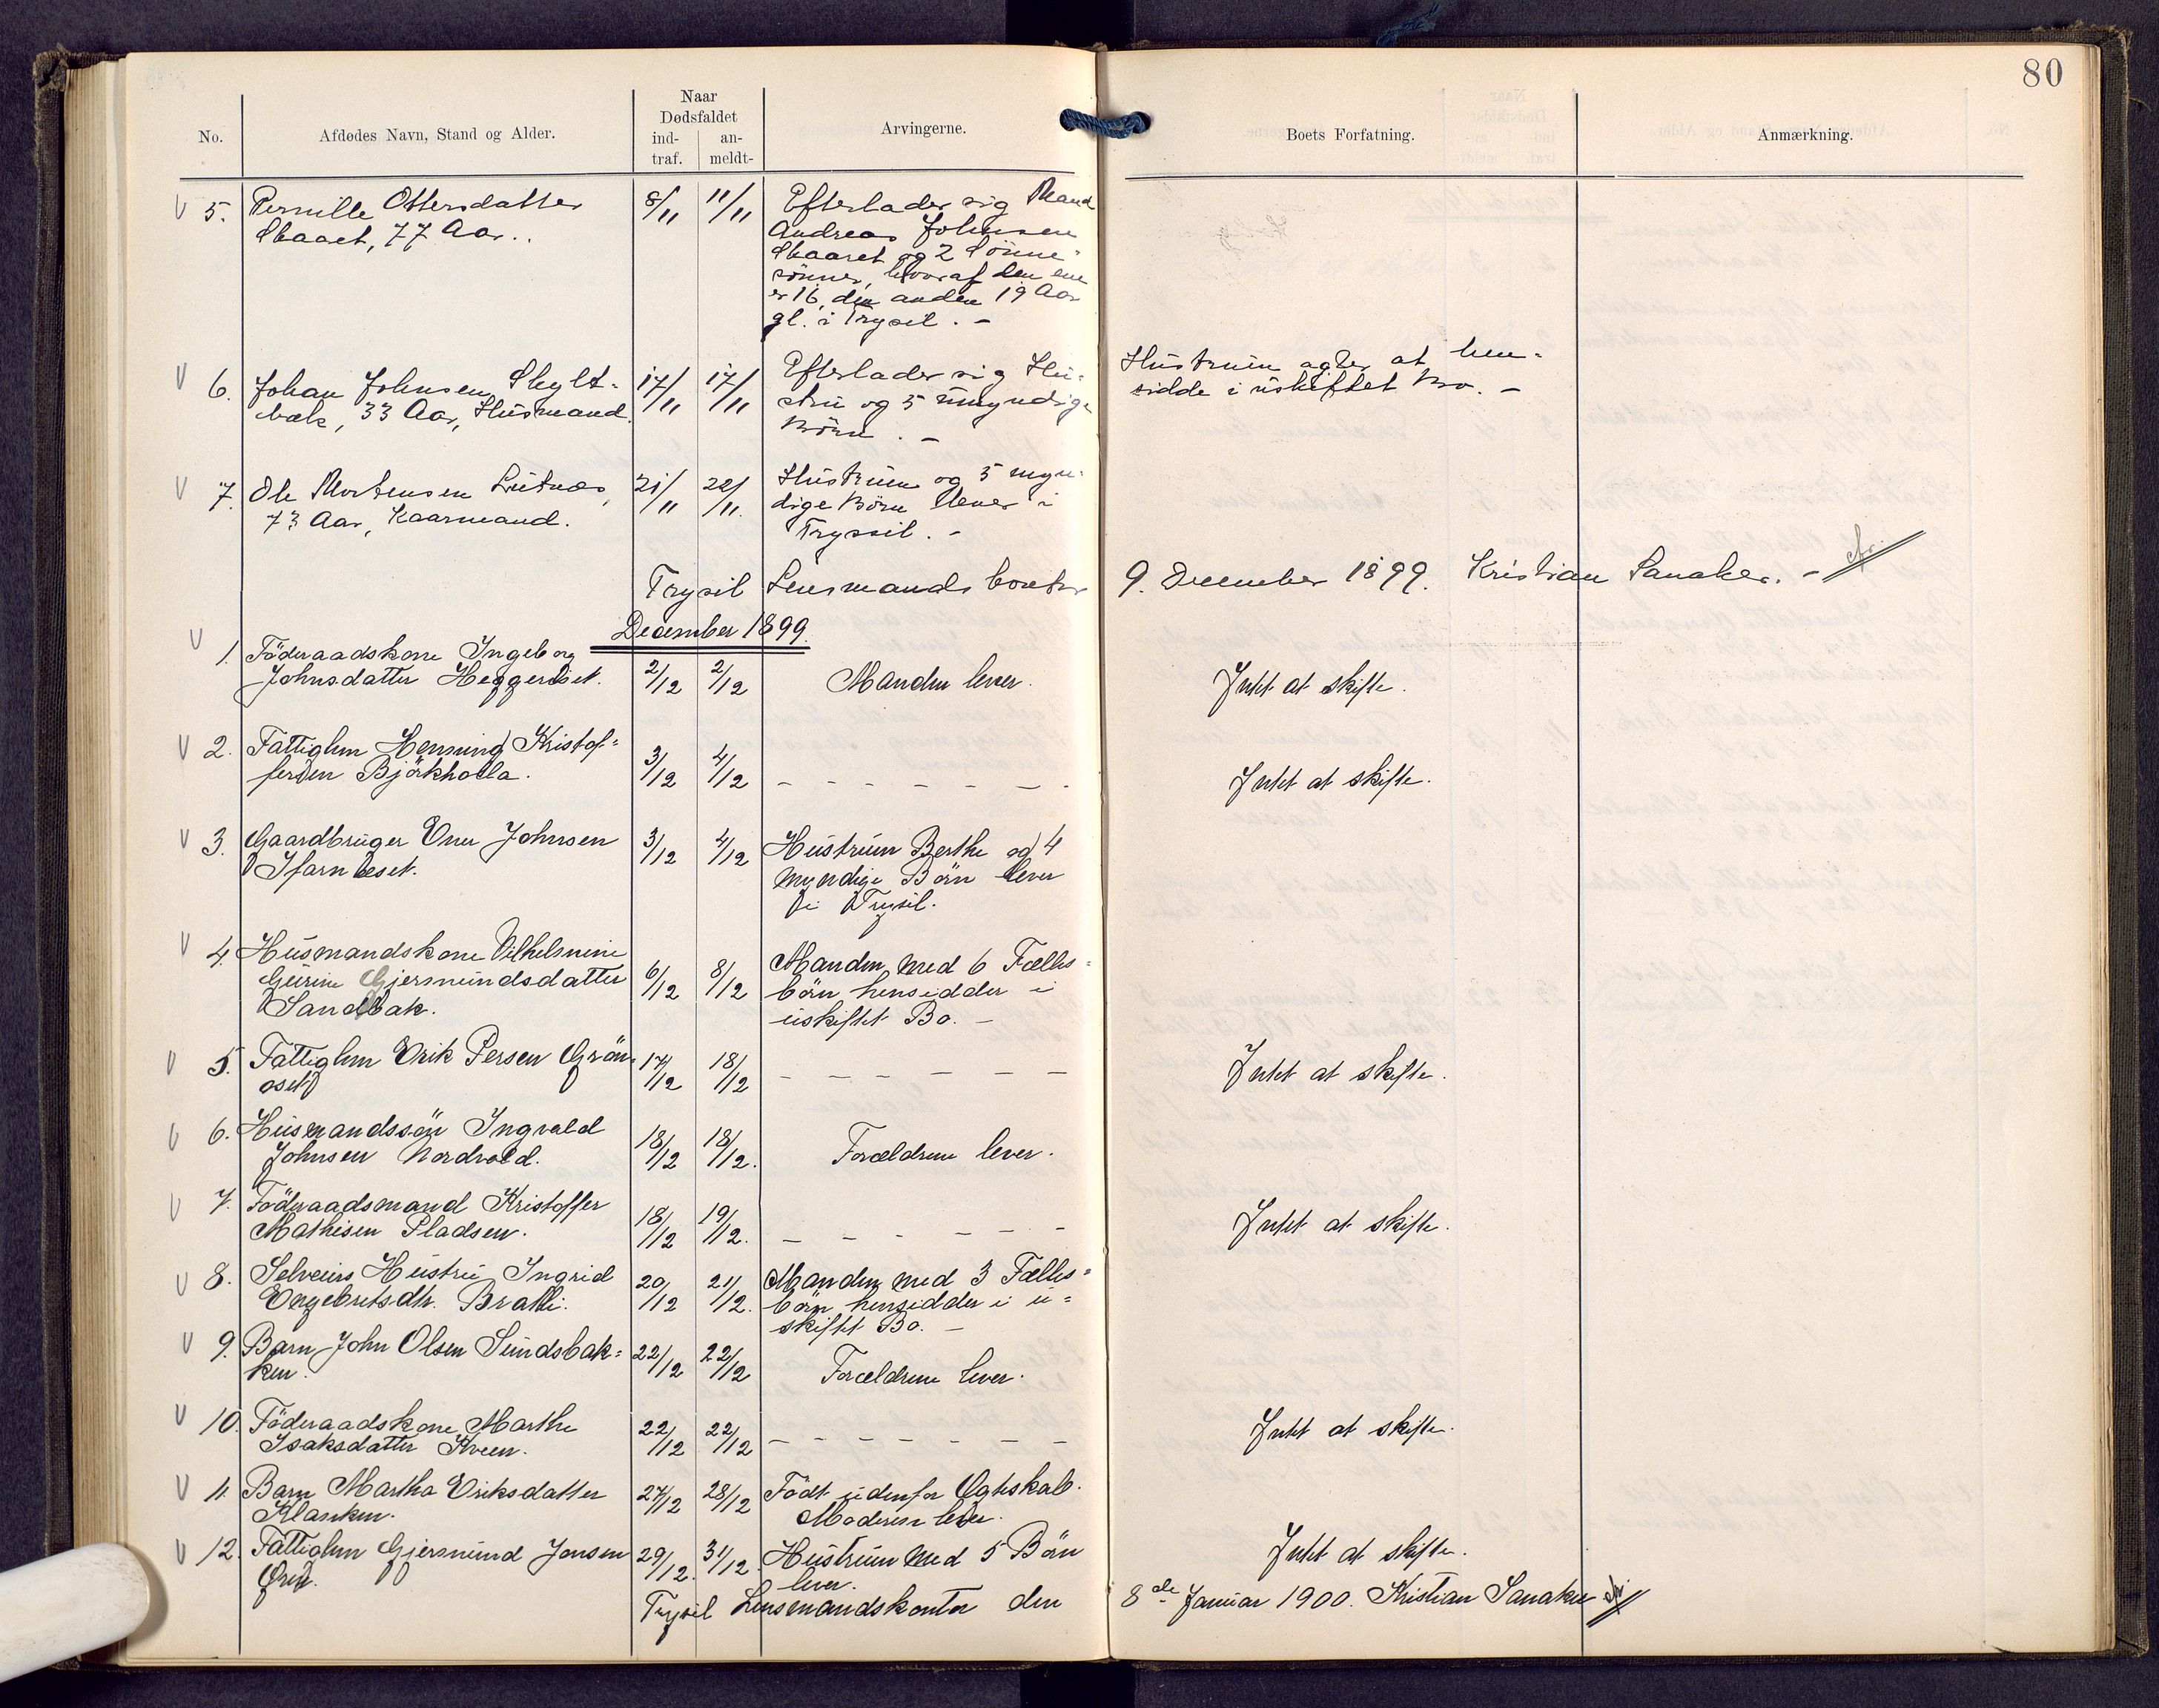 80
No.
Afdødes Navn, Stand og Alder.
Naar
Dødsfaldet
ind-
traf.
an-
meldt-
Arvingerne.
Boets Forfatning.
Anmærkning.
5. Pernille Ottersdatter
Skaaret, 77 Aar..
8/11 11/11
Efterlader sig Mand
Andreas Johnsen
Skaaret og 2 Sönne-
sönner, hvoraf den ene
er 16, den anden 19 Aar
gl. i Trysil. -
6. Johan Johnsen Skylt-
bæk, 33 Aar, Husmand.
17/11 17/11
Efterlader sig Hu-
stru og 5 umyndige
Börn. -
Hustruen agter at hen-
sidde i uskiftet Bo. -
7. Ole Mortensen Lutnæs,
73 Aar, Kaarmand.
21/11 22/11.
Hustruen og 5 myn-
dige Börn lever i
Tryssil. -
Trysil Lensmandskontor 9. December 1899. Kristian Sanaker. -
December 1899.
1. Föderaadskone Ingeborg
Johnsdatter Heggeriset.
2/12 2/12
Manden lever.
Intet at skifte.
2. Fattiglem Henning Kristof=
fersen Björkholla.
3/12 4/12
- - - - - - -
Intet at skifte.
3. Gaardbruger Enu Johnsen
Ifarnæset.
3/12 4/12
Hustruen Berthe og 4
myndige Börn lever
i Trysil.
4. Husmandskone Vilhelmine
Gurine Gjermundsdatter
Sandbak.
6/12 8/12
Manden med 6 Fælles=
börn hensidder i
uskiftet Bo. -
5. Fattiglem Erik Persen Grön=
oset
17/12 18/12
- - - - - -
Intet at skifte.
6. Husmandssön Ingvald
Johnsen Nordvold.
18/12 18/12.
Forældrene lever.
7. Föderaadsmand Kristoffer
Mathisen Pladsen.
18/12 19/12.
- - - - - -
Intet at skifte.
8. Selveiers Hustru Ingrid
Engebretsdtr. Bratli.
20/12 21/12.
Manden med 3 Fælles=
börn hensidder i u=
skiftet Bo. -
9. Barn John Olsen Sundsbak=
ken.
22/12 22/12
Forældrene lever.
10. Föderaadskone Marthe
Isaksdatter Kveen.
22/12 22/12
- - - - - - -
Intet at skifte.
11. Barn Martha Eriksdatter
Klanken.
27/12 28/12
Födt udenfor Egteskab.
Moderen lever.
12. Fattiglem Gjermund Jonsen
Øren.
29/12. 31/12.
Hustruen med 5 Börn
lever.
Intet at skifte.
Trysil Lensmandskontor den 8de Januar 1900. Kristian Sanaker